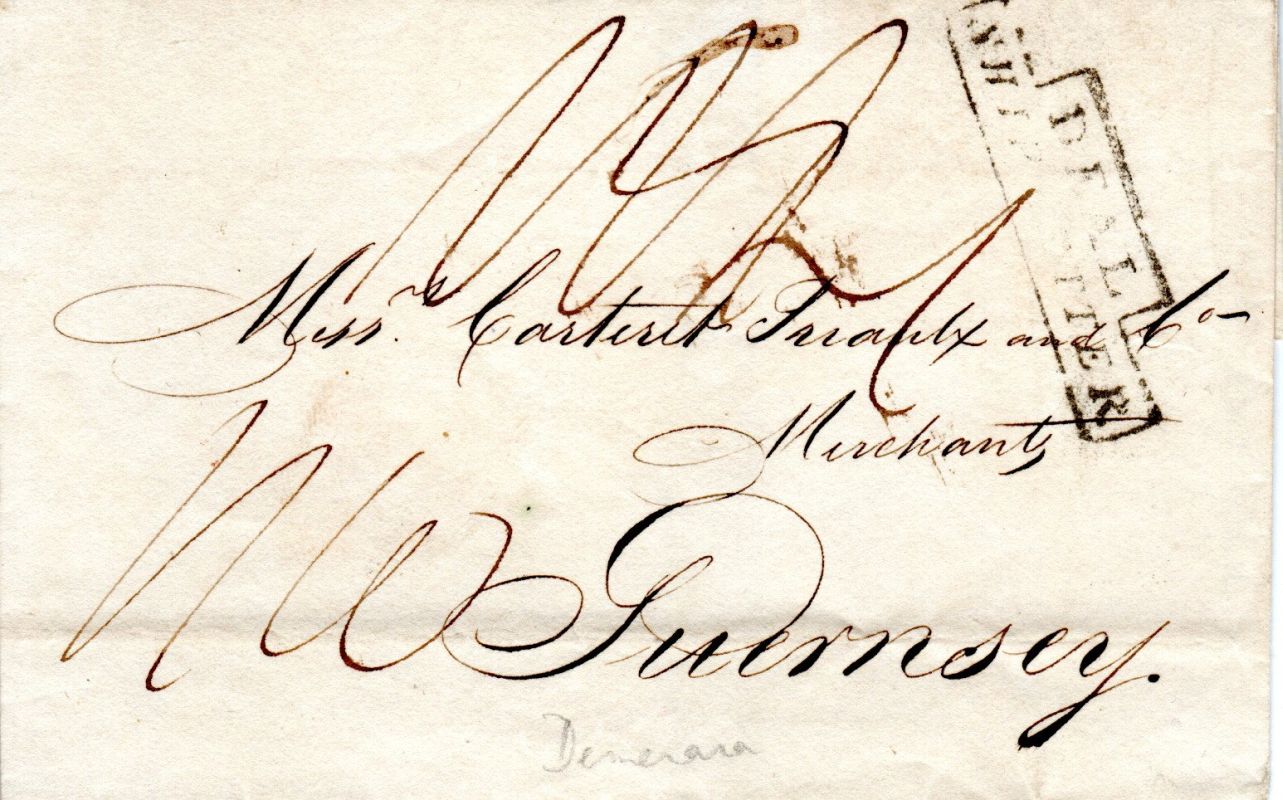 DEAL
SHIP LETTER
Mess.rs Carteret Priaulx and Co
Merchants
Guernsey.
Demerara